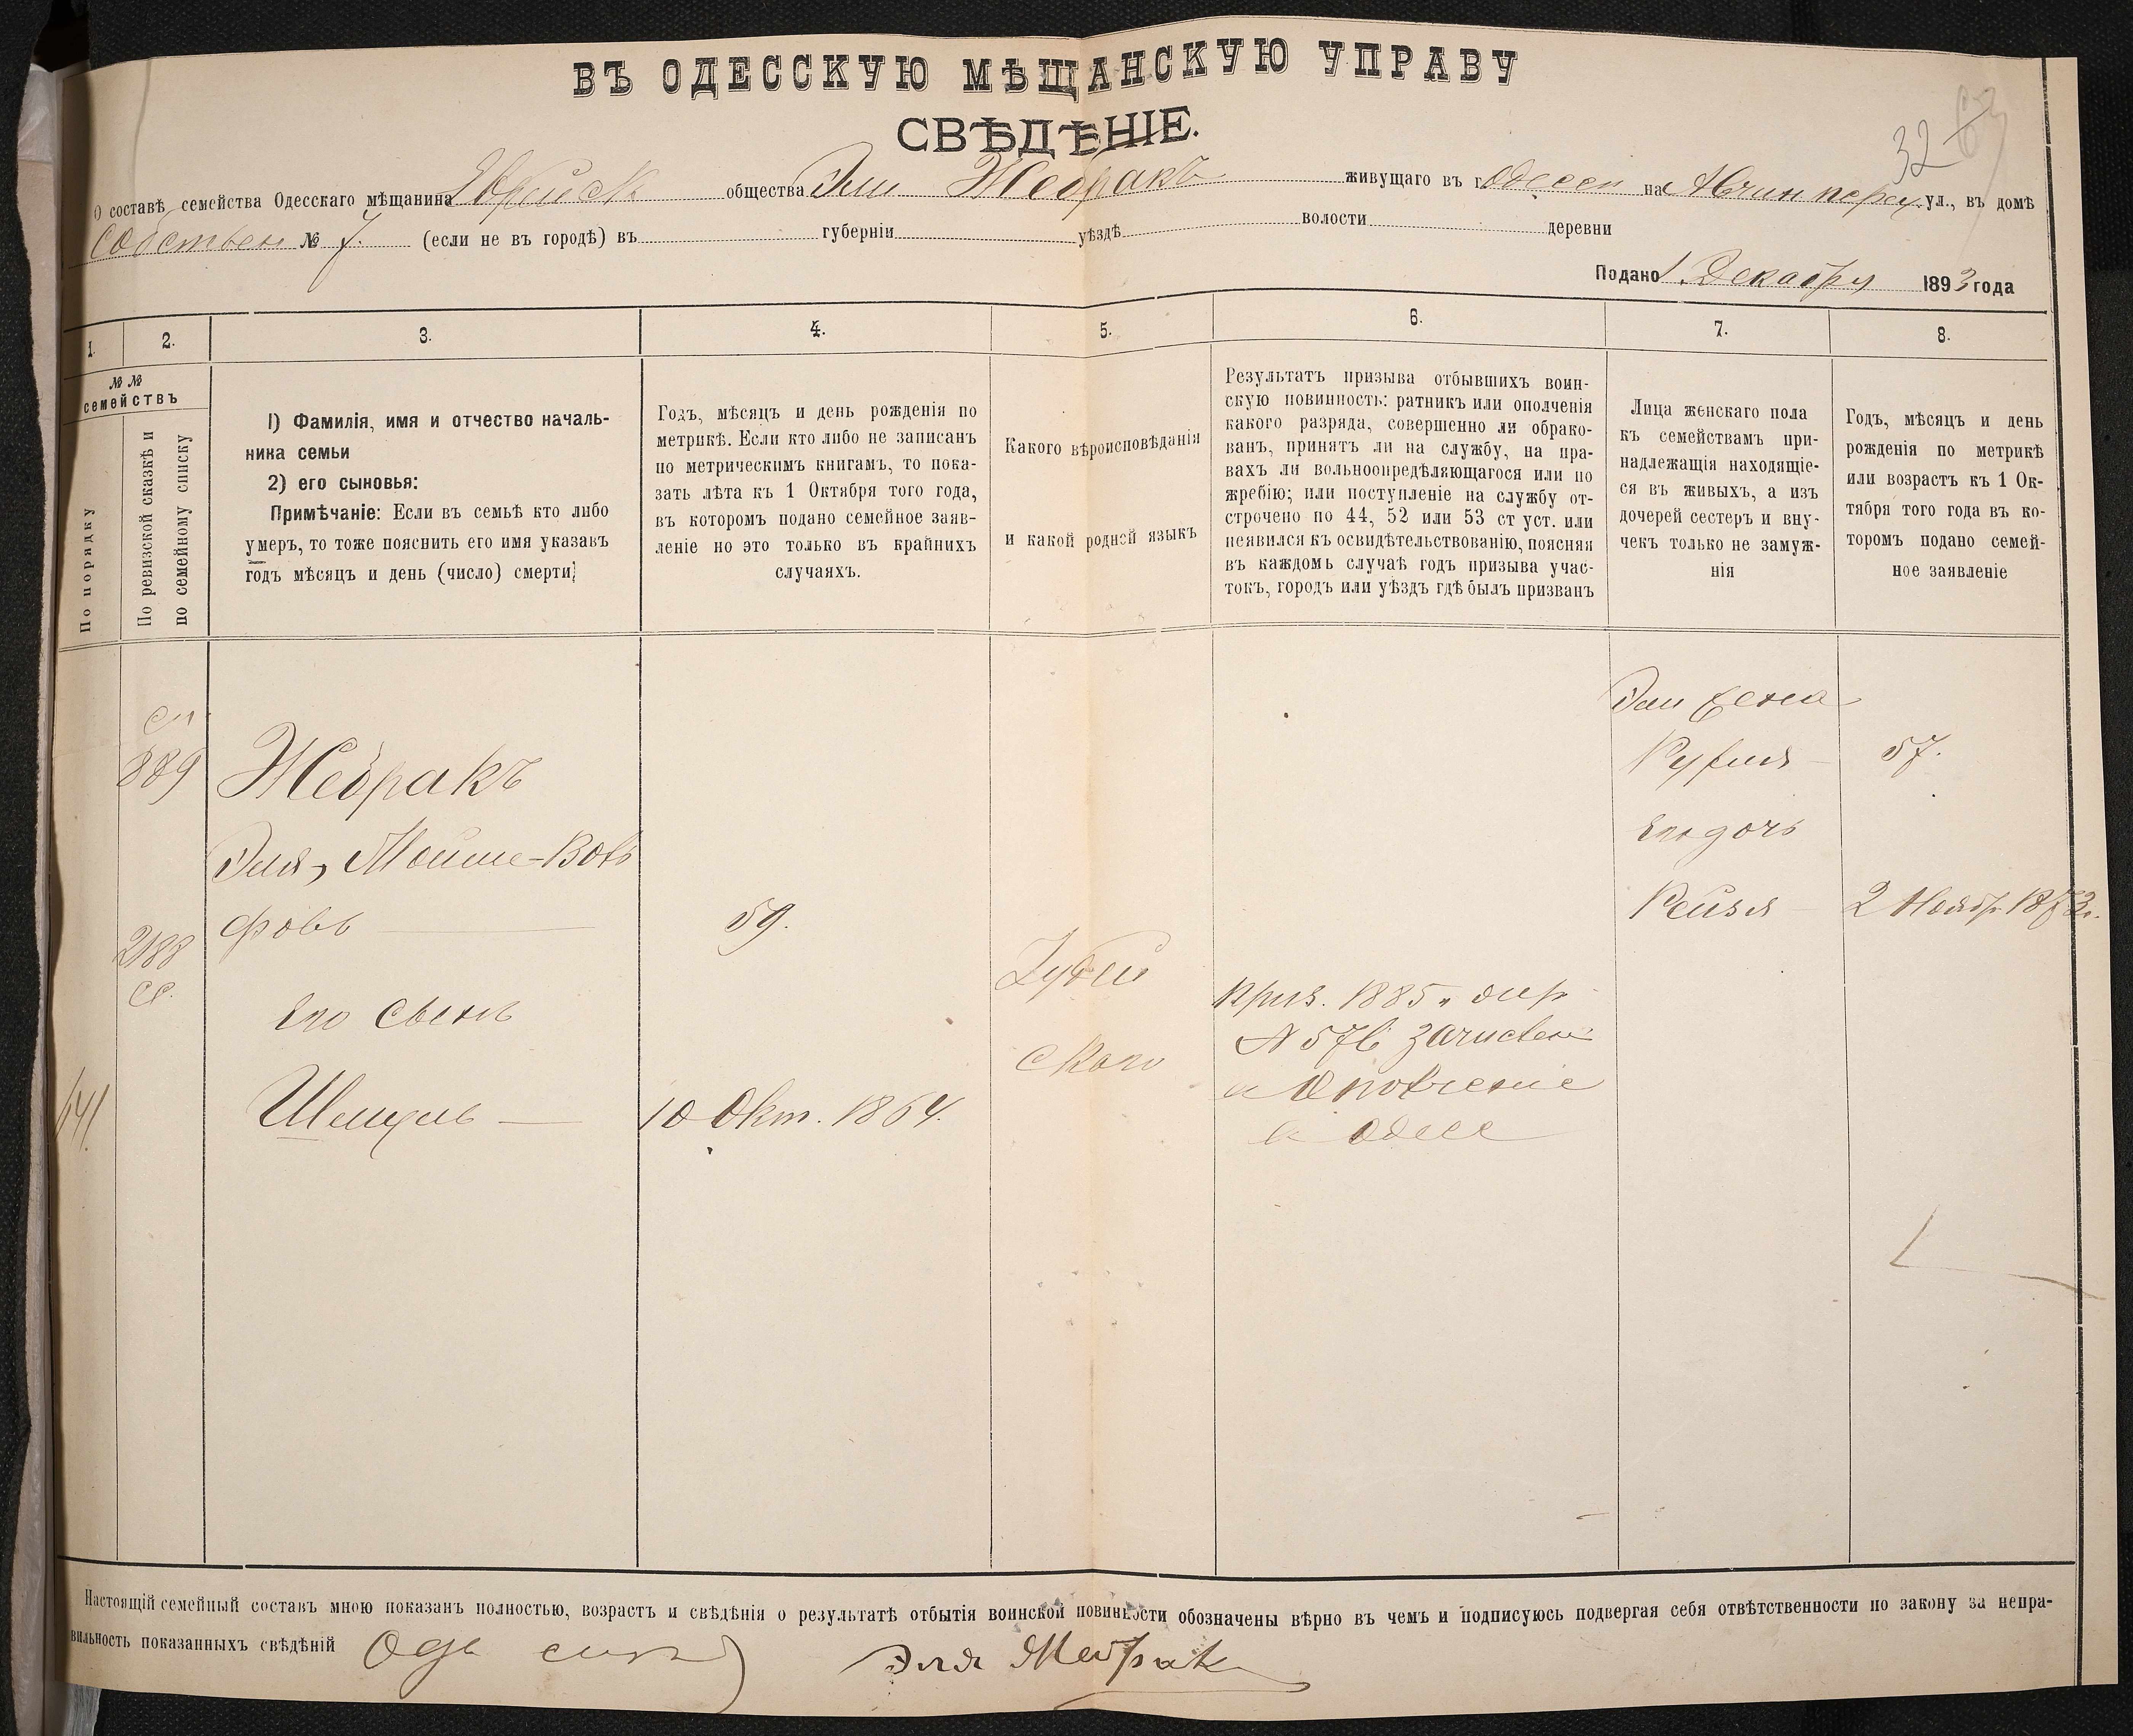 ВЪ ОДЕССКУЮ МѢЩАНСКУЮ УПРАВУ
СВѢДѢНІЕ.
32
О составѣ семейства Одесскаго мѣщанина Еврейск общества Эли Жебракъ живущаго въ г. Одессѣ на ул., въ домѣ
Собствен № 7. (если не въ городѣ) въ губерніи уѣздѣ волости деревни
Подано 1 Декабря 1893 года
1. 2. 3. 4. 5. 6. 7. 8.
№ №
семействъ
По порядку
По ревизской сказкѣ и
по семейному списку
1) Фамилія, имя и отчество началь-
ника семьи
2) его сыновья:
Примѣчаніе: Если въ семьѣ кто либо
умеръ, то тоже пояснить его имя указавъ
годъ мѣсяцъ и день (число) смерти;
Годъ, мѣсяцъ и день рожденія по
метрикѣ. Если кто либо не записанъ
по метрическимъ книгамъ, то пока-
зать лѣта къ 1 Октября того года,
въ которомъ подано семейное заяв-
леніе но это только въ крайнихъ
случаяхъ.
Какого вѣроисповѣданія
и какой родной языкъ
Результатъ призыва отбывшихъ воин-
скую повинность: ратникъ или ополченія
какого разряда, совершенно ли обрако-
ванъ, принятъ ли на службу, на пра-
вахъ ли вольноопредѣляющагося или по
жребію; или поступленіе на службу от-
строчено по 44, 52 или 53 ст уст. или
неявился къ освидѣтельствованію, поясняя
въ каждомъ случаѣ годъ призыва учас-
токъ, городъ или уѣздъ гдѣ былъ призванъ
Лица женскаго пола
къ семействамъ при-
надлежащія находящіе-
ся въ живыхъ, а изъ
дочерей сестеръ и вну-
чекъ только не замуж-
нія
Годъ, мѣсяцъ и день
рожденія по метрикѣ
или возрастъ къ 1 Ок-
тября того года въ ко-
торомъ подано семей-
ное заявленіе
889
Жебракъ
Эля, Мойше-Воль
фовъ
59.
2188
Его Сынъ
141.
Шмуль
10 Окт. 1864.
Іудей
скаго
Приз. 1885
зачислен
в Ополченіе
в Одесс
Эли Жена
57.
Его дочь
Рейзя
2 Ноябр 1873 г.
Настоящій семейный составъ мною показанъ полностью, возрастъ и свѣдѣнія о результатѣ отбытія воинской повинности обозначены вѣрно въ чемъ и подписуюсь подвергая себя отвѣтственности по закону за непра-
вильность показанныхъ свѣдѣній
Эля Жебрак